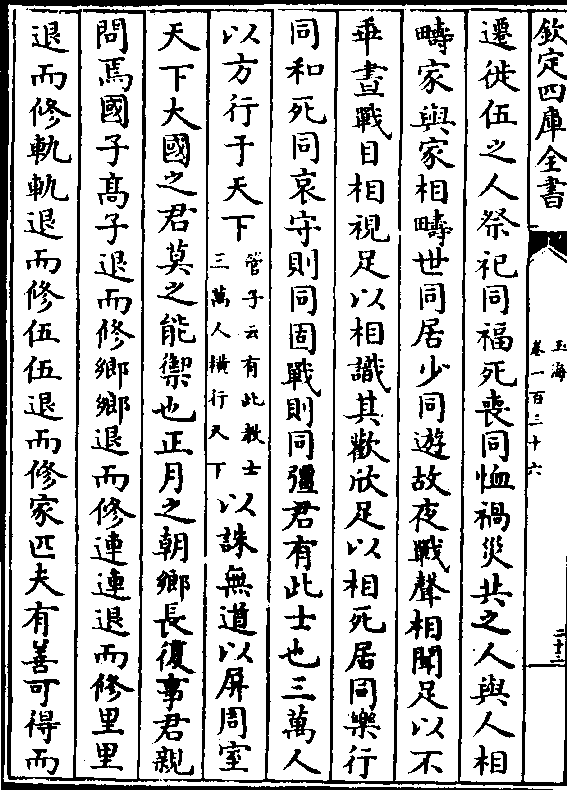 欽定四庫全書
玉海
卷一百三十六
二十三
遷徙伍之人祭祀同福死喪同恤禍災共之人與人相
疇家與家相疇世同居少同遊故夜戰聲相聞足以不
乖晝戰目相視足以相識其歡欣足以相死居同樂行
同和死同哀守則同固戰則同彊君有此士也三萬人
以方行于天下管子云有此教士三萬人橫行天下以誅無道以屏周室
天下大國之君莫之能禦也正月之朝鄉長復事君親
問焉國子髙子退而修鄉鄉退而修連連退而修里里
退而修軌軌退而修伍伍退而修家匹夫有善可得而